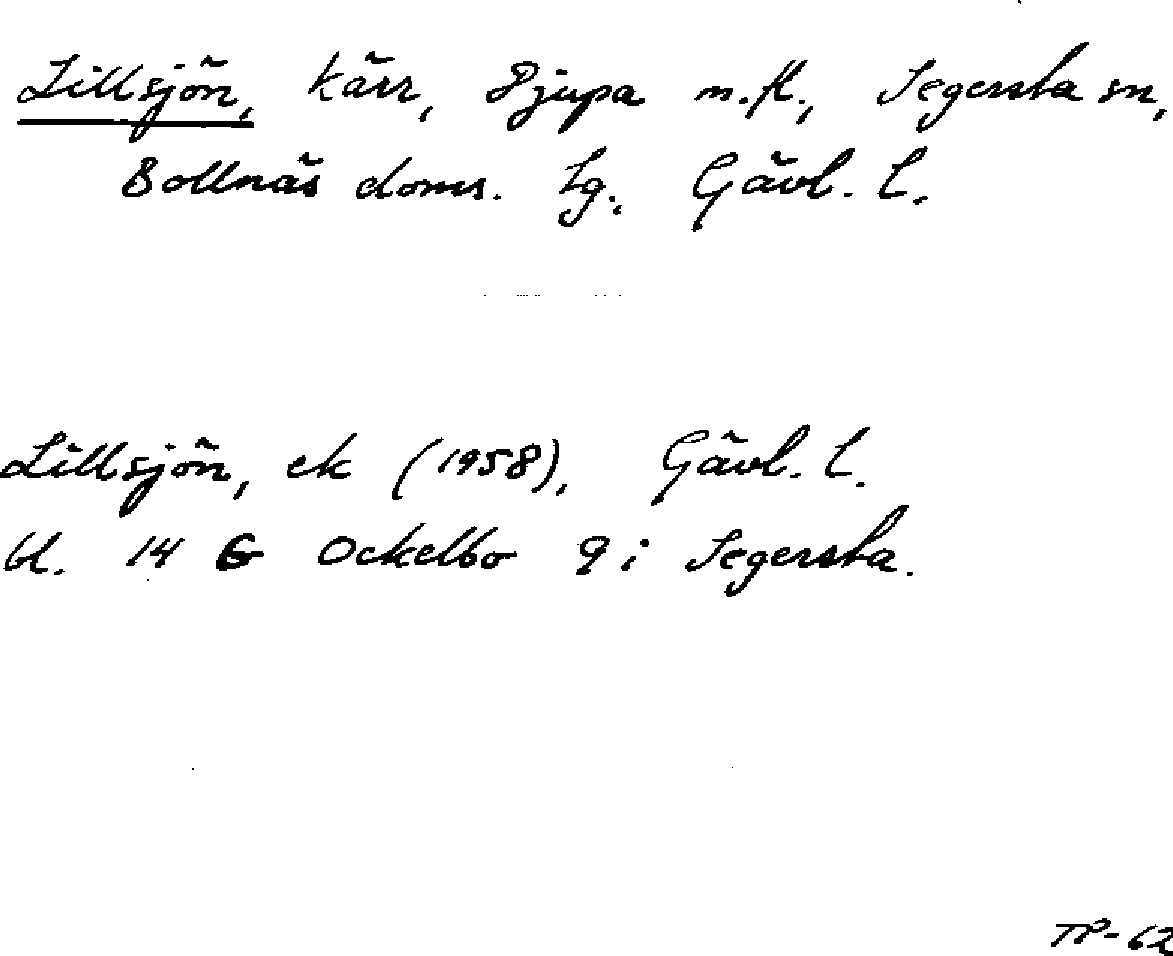 Lillsjön, kärr, Djupa m.fl., Segersta sn,
Bollnäs doms. Lg. Gävl. l.
Lillsjön, ek (1958), Gävl. l.
bl. 14 G Ockelbo 9 i Segersta.
TP-62